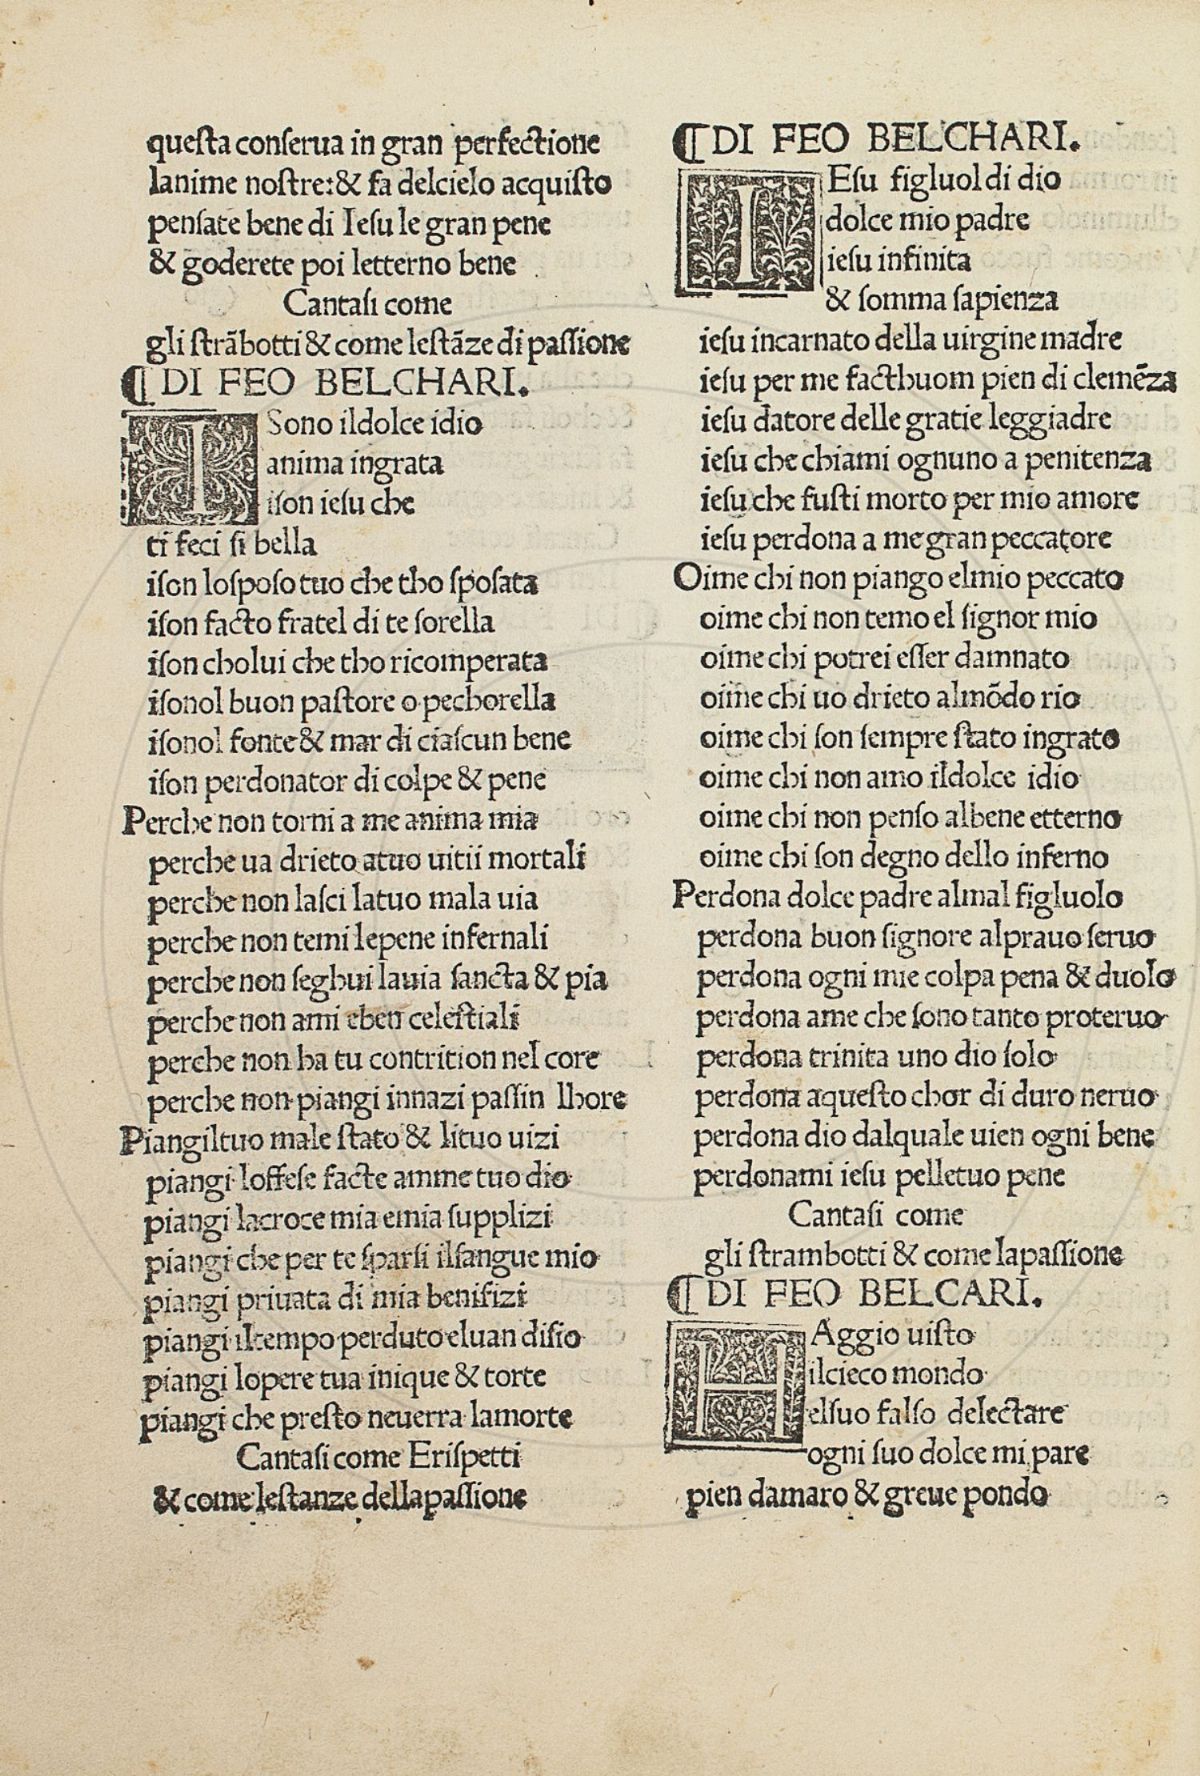 questa conserua in gran perfectione
lanime nostre:& fa delcielo acquisto
pensate bene di Iesu le gran pene
& goderete poi letterno bene
Cantasi come
gli strābotti & come lestāze di passione
¶ DI FEO BELCHARI.
ISono ildolce idio
anima ingrata
ison iesu che
ti feci si bella
ison losposo tuo che tho sposata
ison facto fratel di te sorella
ison cholui che tho ricomperata
isonol buon pastore o pechorella
isonol fonte & mar di ciascun bene
ison perdonator di colpe & pene
Perche non torni a me anima mia
perche ua drieto atuo uitii mortali
perche non lasci latuo mala uia
perche non temi lepene infernali
perche non seghui lauia sancta & pia
perche non ami eben celestiali
perche non ha tu contrition nel core
perche non piangi innazi passin lhore
Piangiltuo male stato & lituo uizi
piangi loffese facte amme tuo dio
piangi lacroce mia emia supplizi
piangi che per te sparsi ilsangue mio
piangi priuata di mia benifizi
piangi iltempo perduto eluan disio
piangi lopere tua inique & torte
piangi che presto neuerra lamorte
Cantasi come Erispetti
& come lestanze dellapassione
¶ DI FEO BELCHARI.
IEsu figluol di dio
dolce mio padre
iesu infinita
& somma sapienza
iesu incarnato della uirgine madre
iesu per me facthuom pien di clemēza
iesu datore delle gratie leggiadre
iesu che chiami ognuno a penitenza
iesu che fusti morto per mio amore
iesu perdona a me gran peccatore
Oime chi non piango elmio peccato
oime chi non temo el signor mio
oime chi potrei esser damnato
oime chi uo drieto almōdo rio
oime chi son sempre stato ingrato
oime chi non amo ildolce idio
oime chi non penso albene etterno
oime chi son degno dello inferno
Perdona dolce padre almal figluolo
perdona buon signore alprauo seruo
perdona ogni mie colpa pena & duolo
perdona ame che sono tanto proteruo
perdona trinita uno dio solo
perdona aquesto chor di duro neruo
perdona dio dalquale uien ogni bene
perdonami iesu pelletuo pene
Cantasi come
gli strambotti & come lapassione
¶ DI FEO BELCARI.
HAggio uisto
ilcieco mondo
elsuo falso delectare
ogni suo dolce mi pare
pien damaro & greue pondo